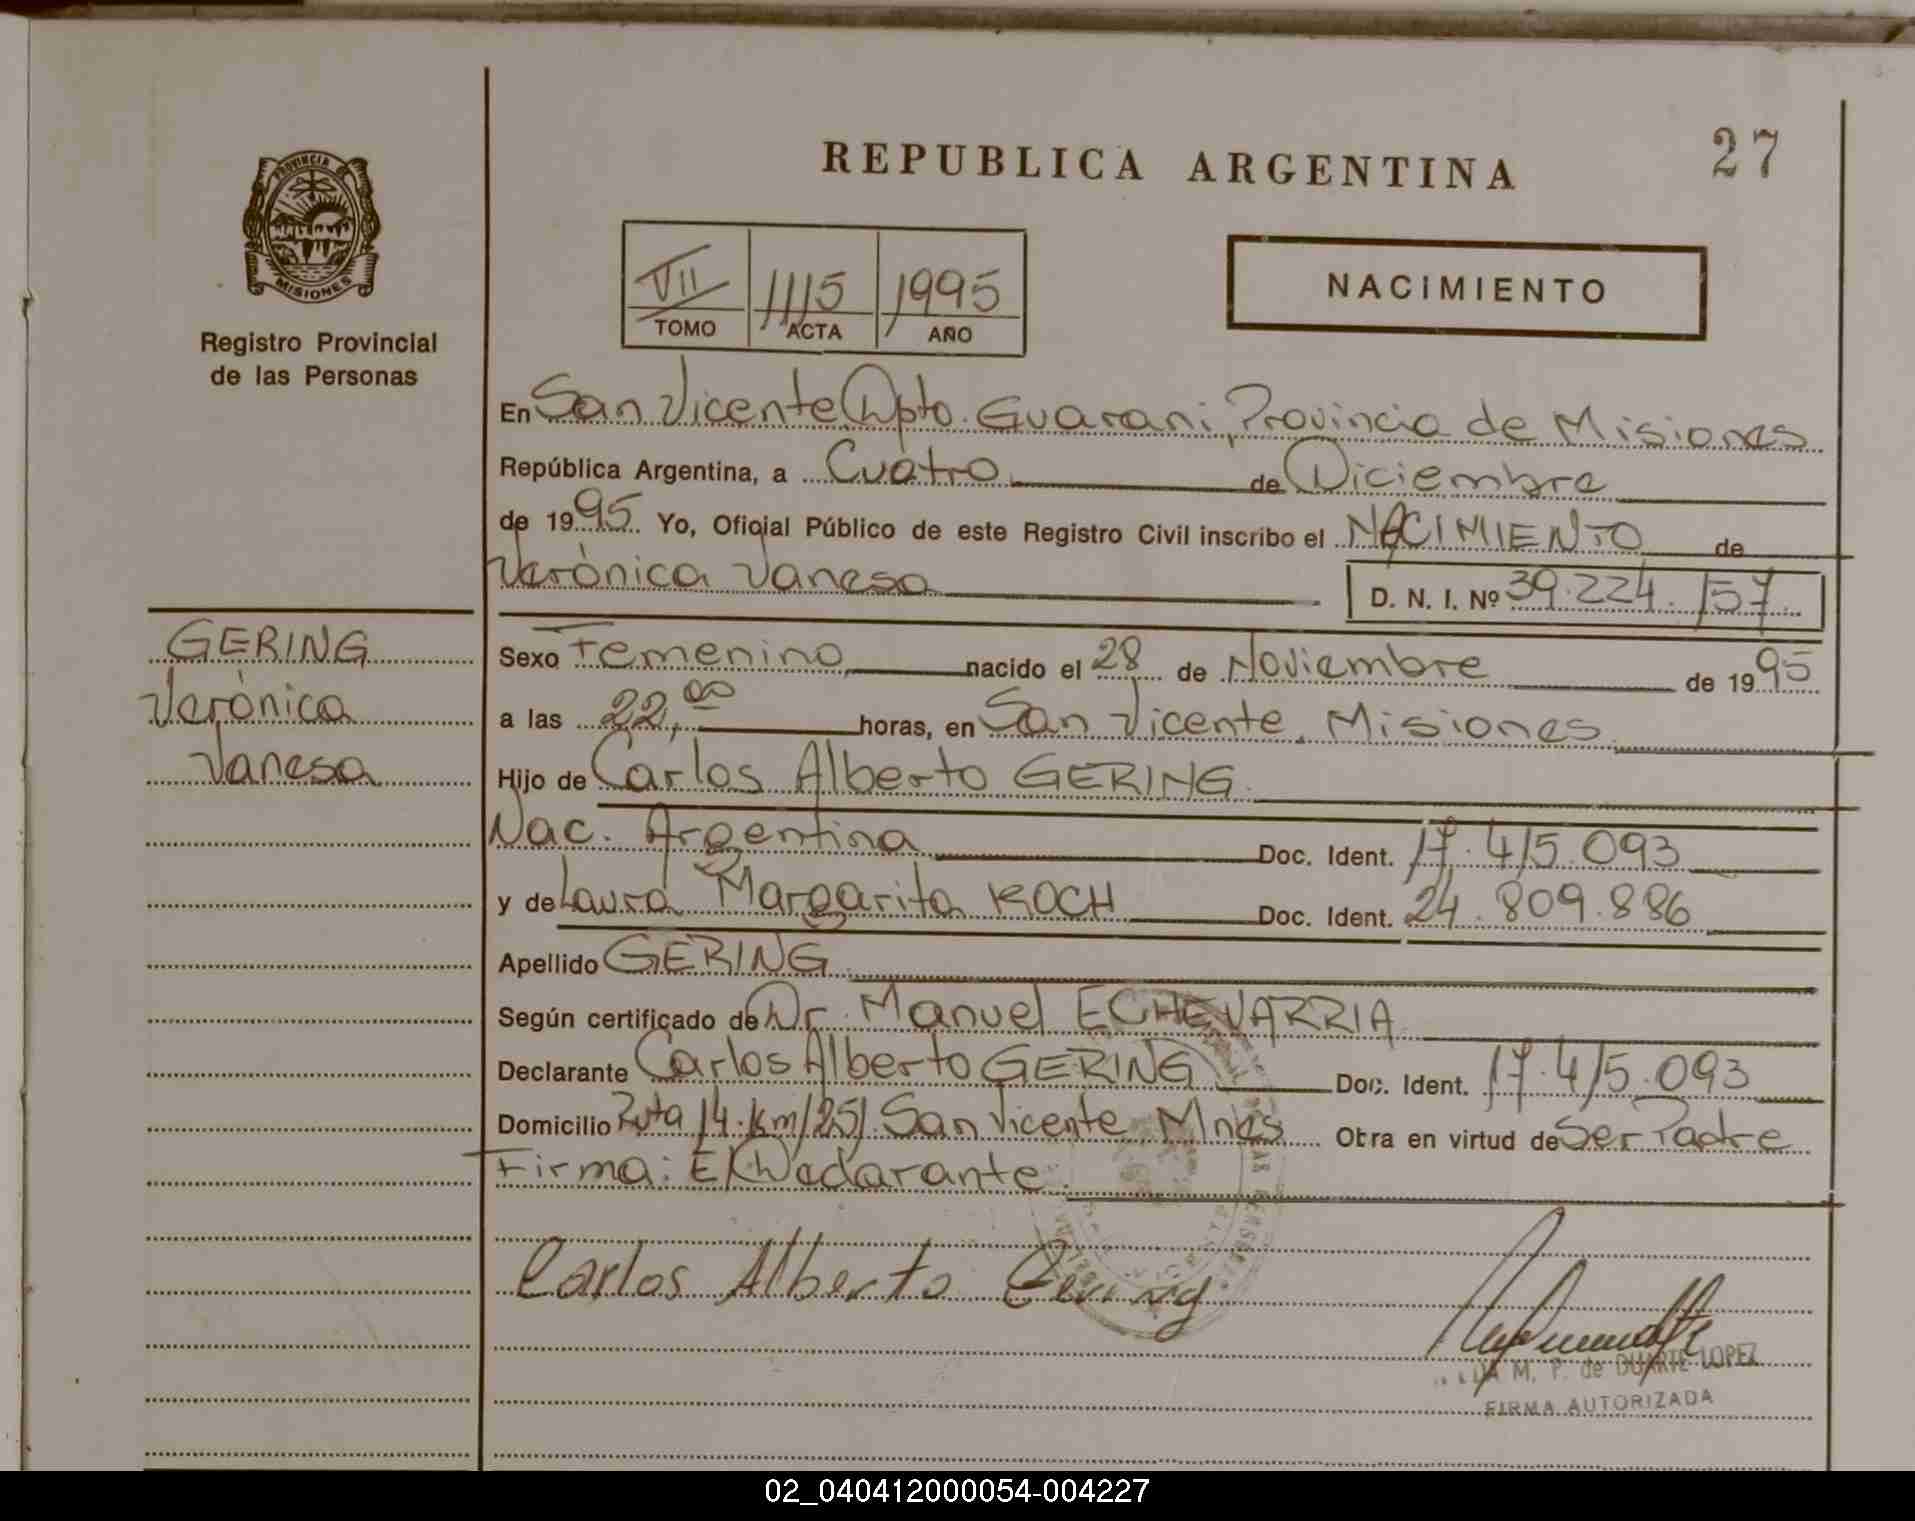 27
REPUBLICA ARGENTINA
PROVINCIA DE
MISIONES
Registro Provincial
de las Personas
VII 1115 1995
TOMO ACTA AÑO
NACIMIENTO
En San Vicente Dpto. Guaraní, Provincia de Misiones
República Argentina, a Cuatro de Diciembre
de 1995 Yo, Oficial Público de este Registro Civil inscribo el NACIMIENTO de
Verónica Vanesa D. N. I. Nº 39.224.157
GERING
Verónica
Vanesa
Sexo Femenino nacido el 28 de Noviembre de 1995
a las 22,00 horas, en San Vicente, Misiones
Hijo de Carlos Alberto GERING
Nac. Argentina Doc. Ident. 17.415.093
y de Laura Margarita KOCH Doc. Ident. 24.809.886
Apellido GERING
Según certificado de Dr. Manuel ECHEVARRIA
Declarante Carlos Alberto GERING Doc. Ident. 17.415.093
Domicilio Ruta 14.km/251. San Vicente, Mnes Obra en virtud de Ser Padre
Firma: El Declarante.
Carlos Alberto Gering
M. P. de DUARTE LOPEZ
FIRMA AUTORIZADA
02_040412000054-004227